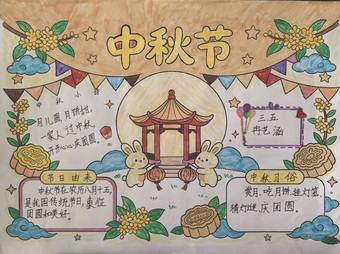 中秋节
中秋小诗
月儿圆,月饼甜,
一家人过中秋,
开开心心庆团圆。
三、五
冉艺涵
节日由来
中秋节在农历八月十五,
是我国传统节日,象征
团圆和美好。
中秋习俗
赏月、吃月饼、挂灯笼、
猜灯谜、庆团圆。